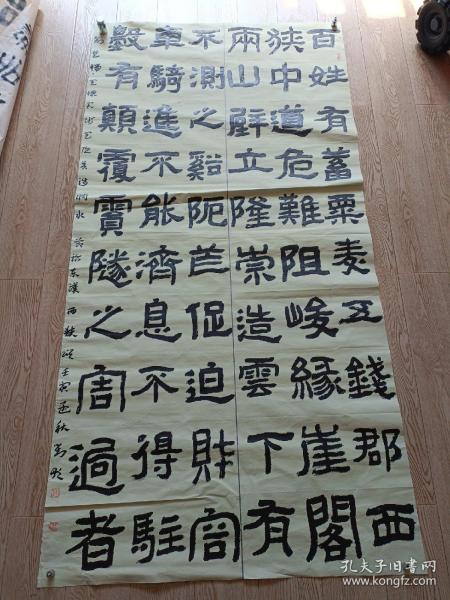 百姓有蓄粟麦五錢郡西
狭中道危難阻峻緣崖閣
兩山壁立隆崇造雲下有
不測之谿阨芒促迫財容
車騎進不能濟息不得駐
數有顛覆霣隧之害過者
東漢西狹頌壬寅秋
孔夫子旧书网
www.kongfz.com